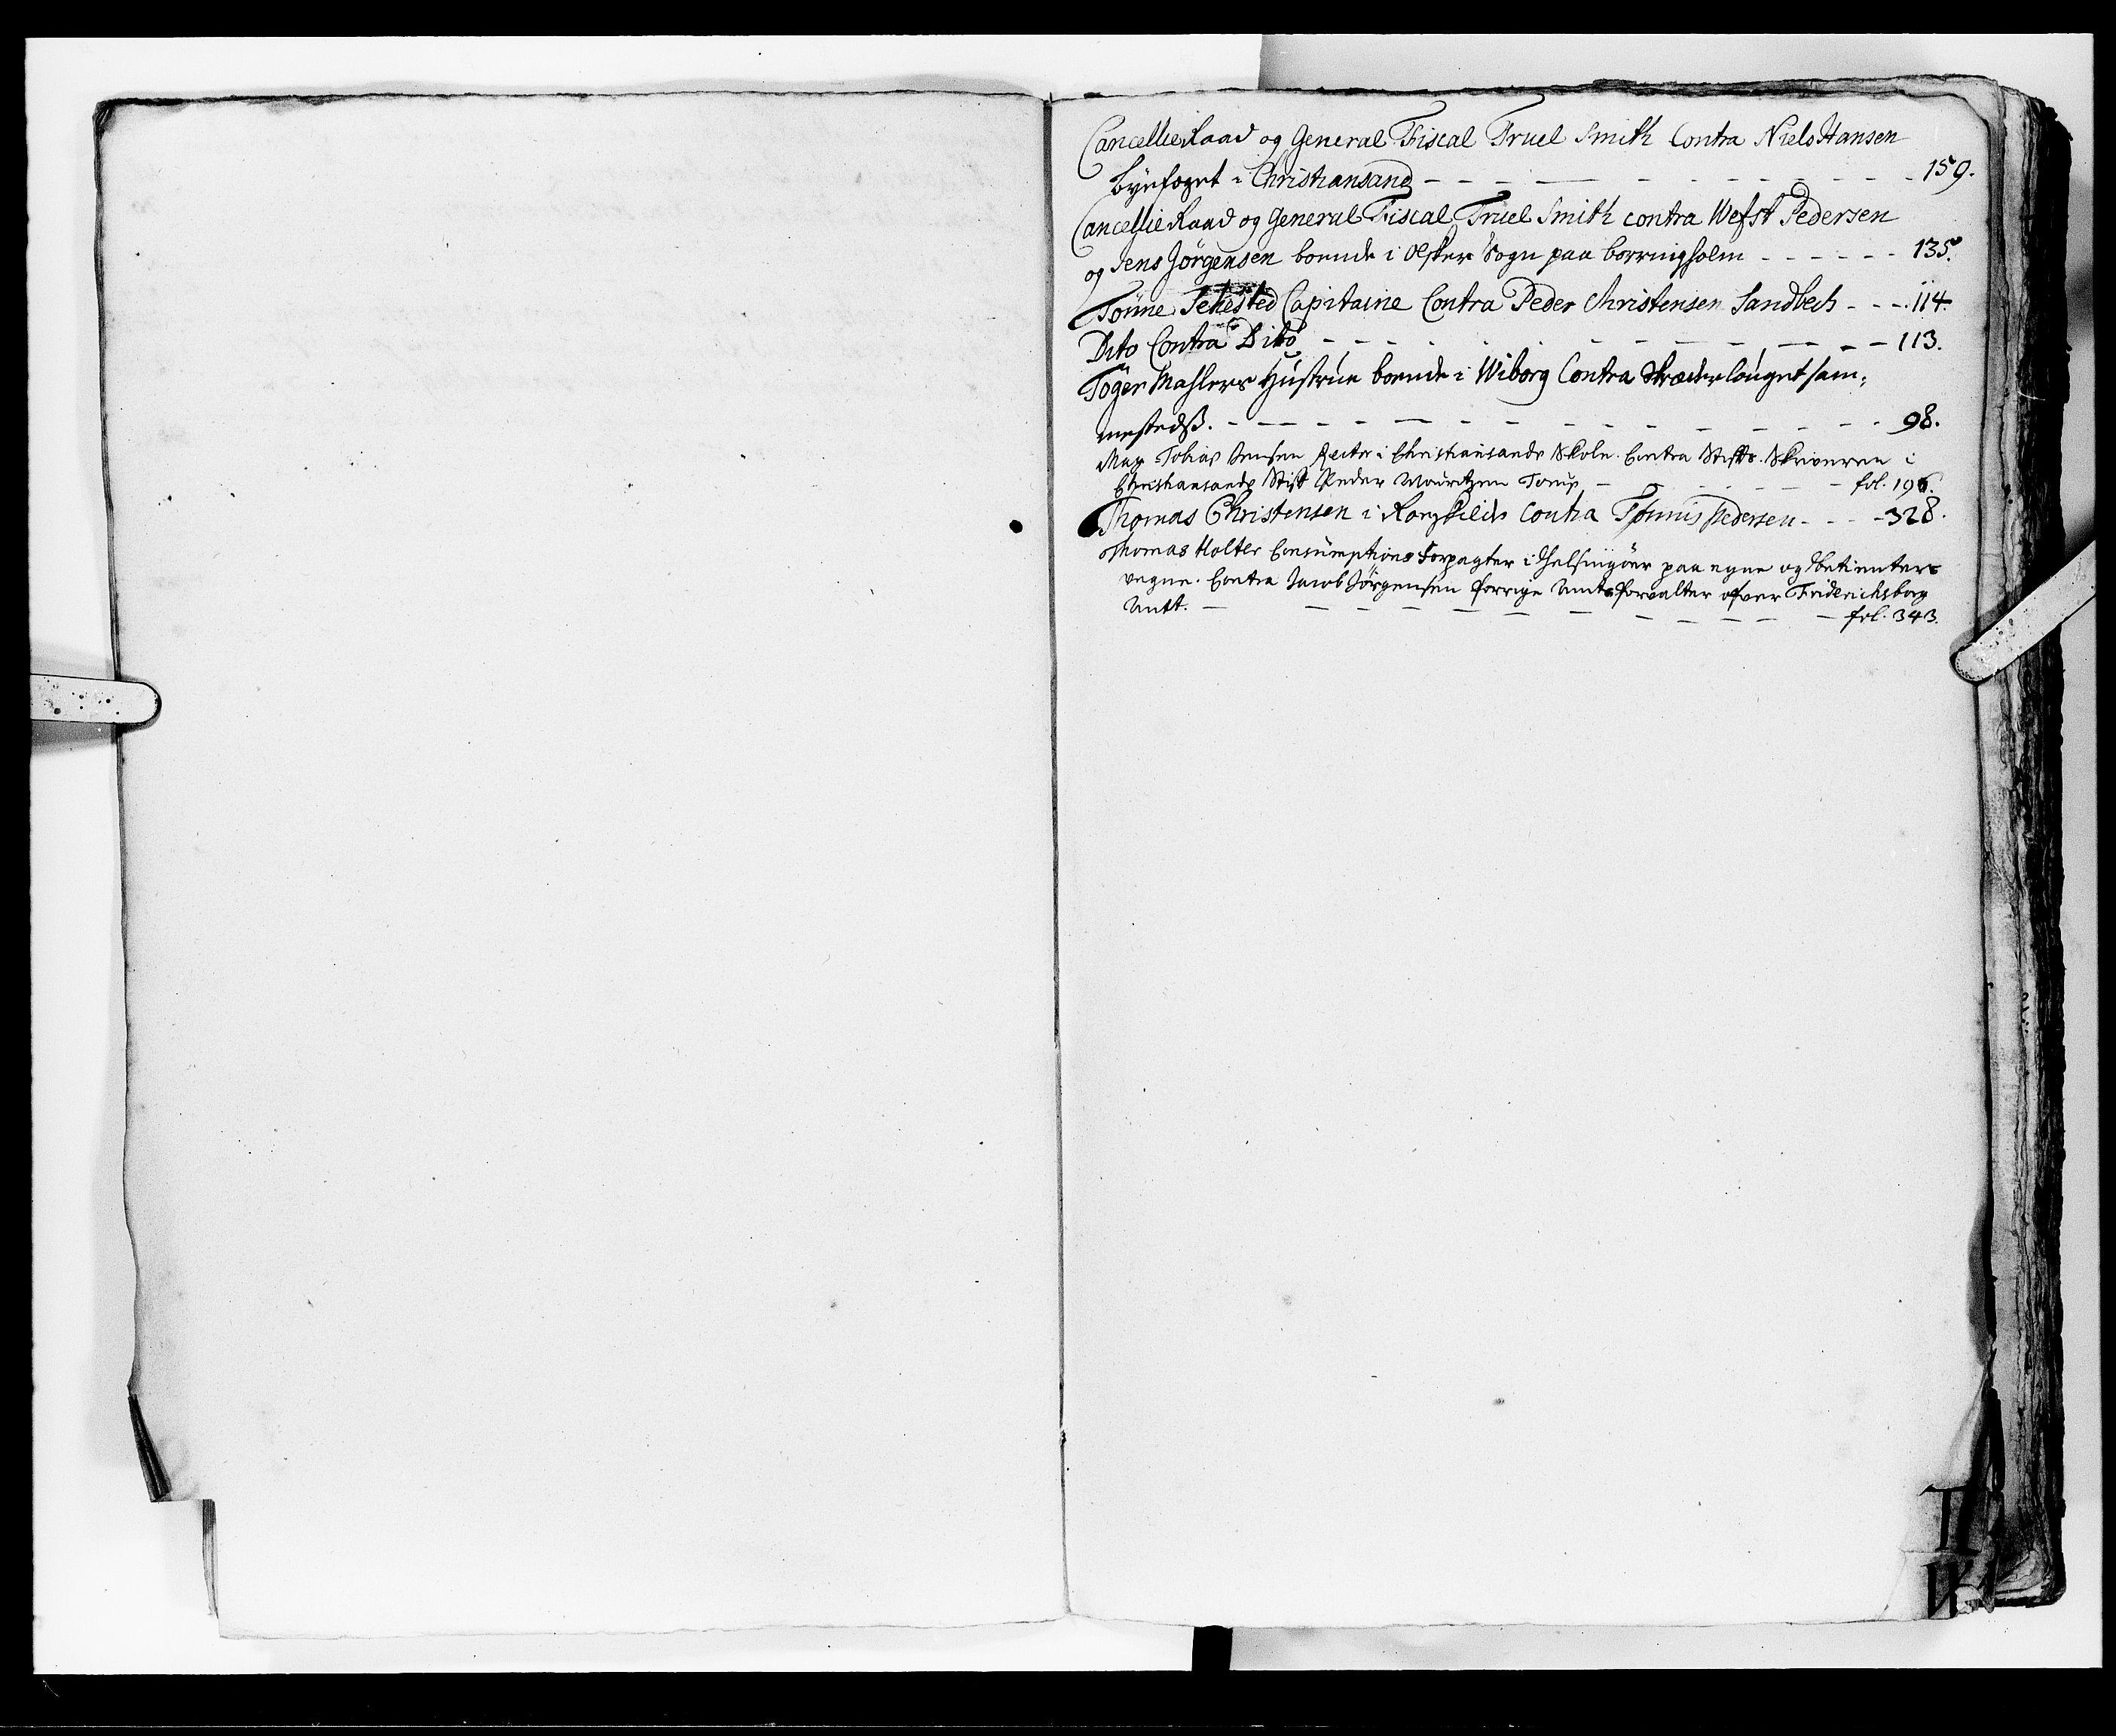 CancellieRaad og General Fiscal Truel Smith Contra Niels Hansen
byefoget i Christiansand - - - - - - - 159.
CancellieRaad og General Fiscal Truel Smith contra Wefst Pedersen
og Jens Jörgensen boende i Olsker Sogn paa borringholm - - - - - - 135.
Tönne Sehested Capitaine Contra Peder Christensen Sandbech - - - 114.
Dito Contra Dito - - - - - - - - - 113.
Töger Mahlers Hustrue boende i Wiborg Contra Skræderlauget sam-
mestedß. - - - - - - - - - - - 98.
Mag Tobias Jensen Rector i Christiansands Skole. Contra Stifts Skriveren i
Christiansands Stift Peder Mouritzen Torup - - - - fol. 196.
Thomas Christensen i Roeskilde Contra Tönnis Pedersen - - - 328.
Thomas Holter Consumptions Forpagter i Helsingöer paa egne og betienters
vegne. Contra Jacob Jörgensen forrige Amtsforvalter ofver Friderichsborg
Amt. - - - - - - - - - - fol. 343.
T
W